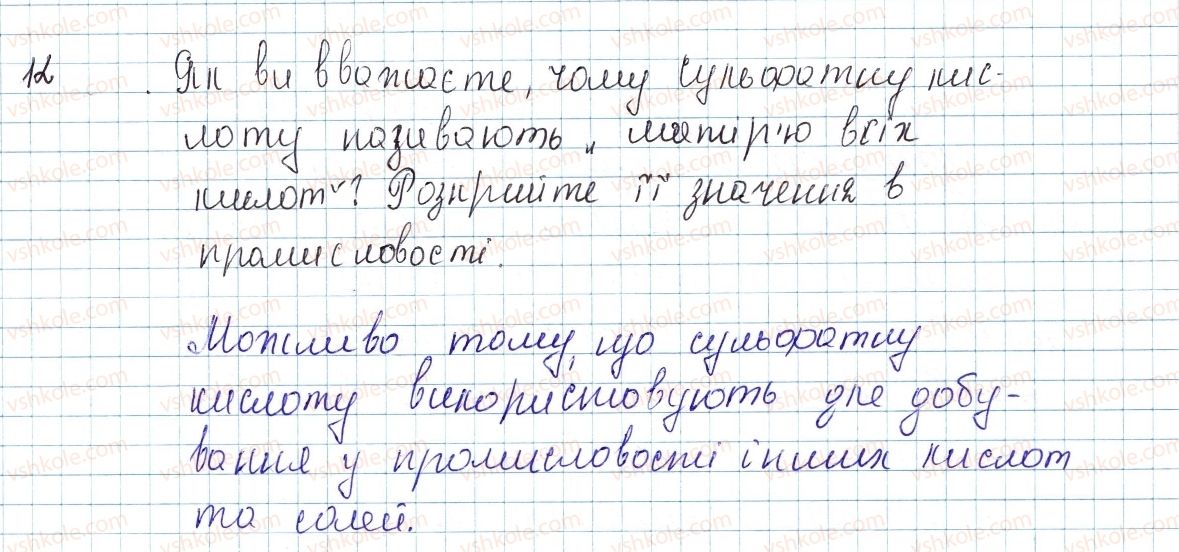 12 . Як ви вважаєте, чому сульфатну кис-
лоту називають „матір'ю всіх
кислот"? Розкрийте її значення в
промисловості.
Можливо тому, що сульфатну
кислоту використовують для добу-
вання у промисловості інших кислот
та солей.